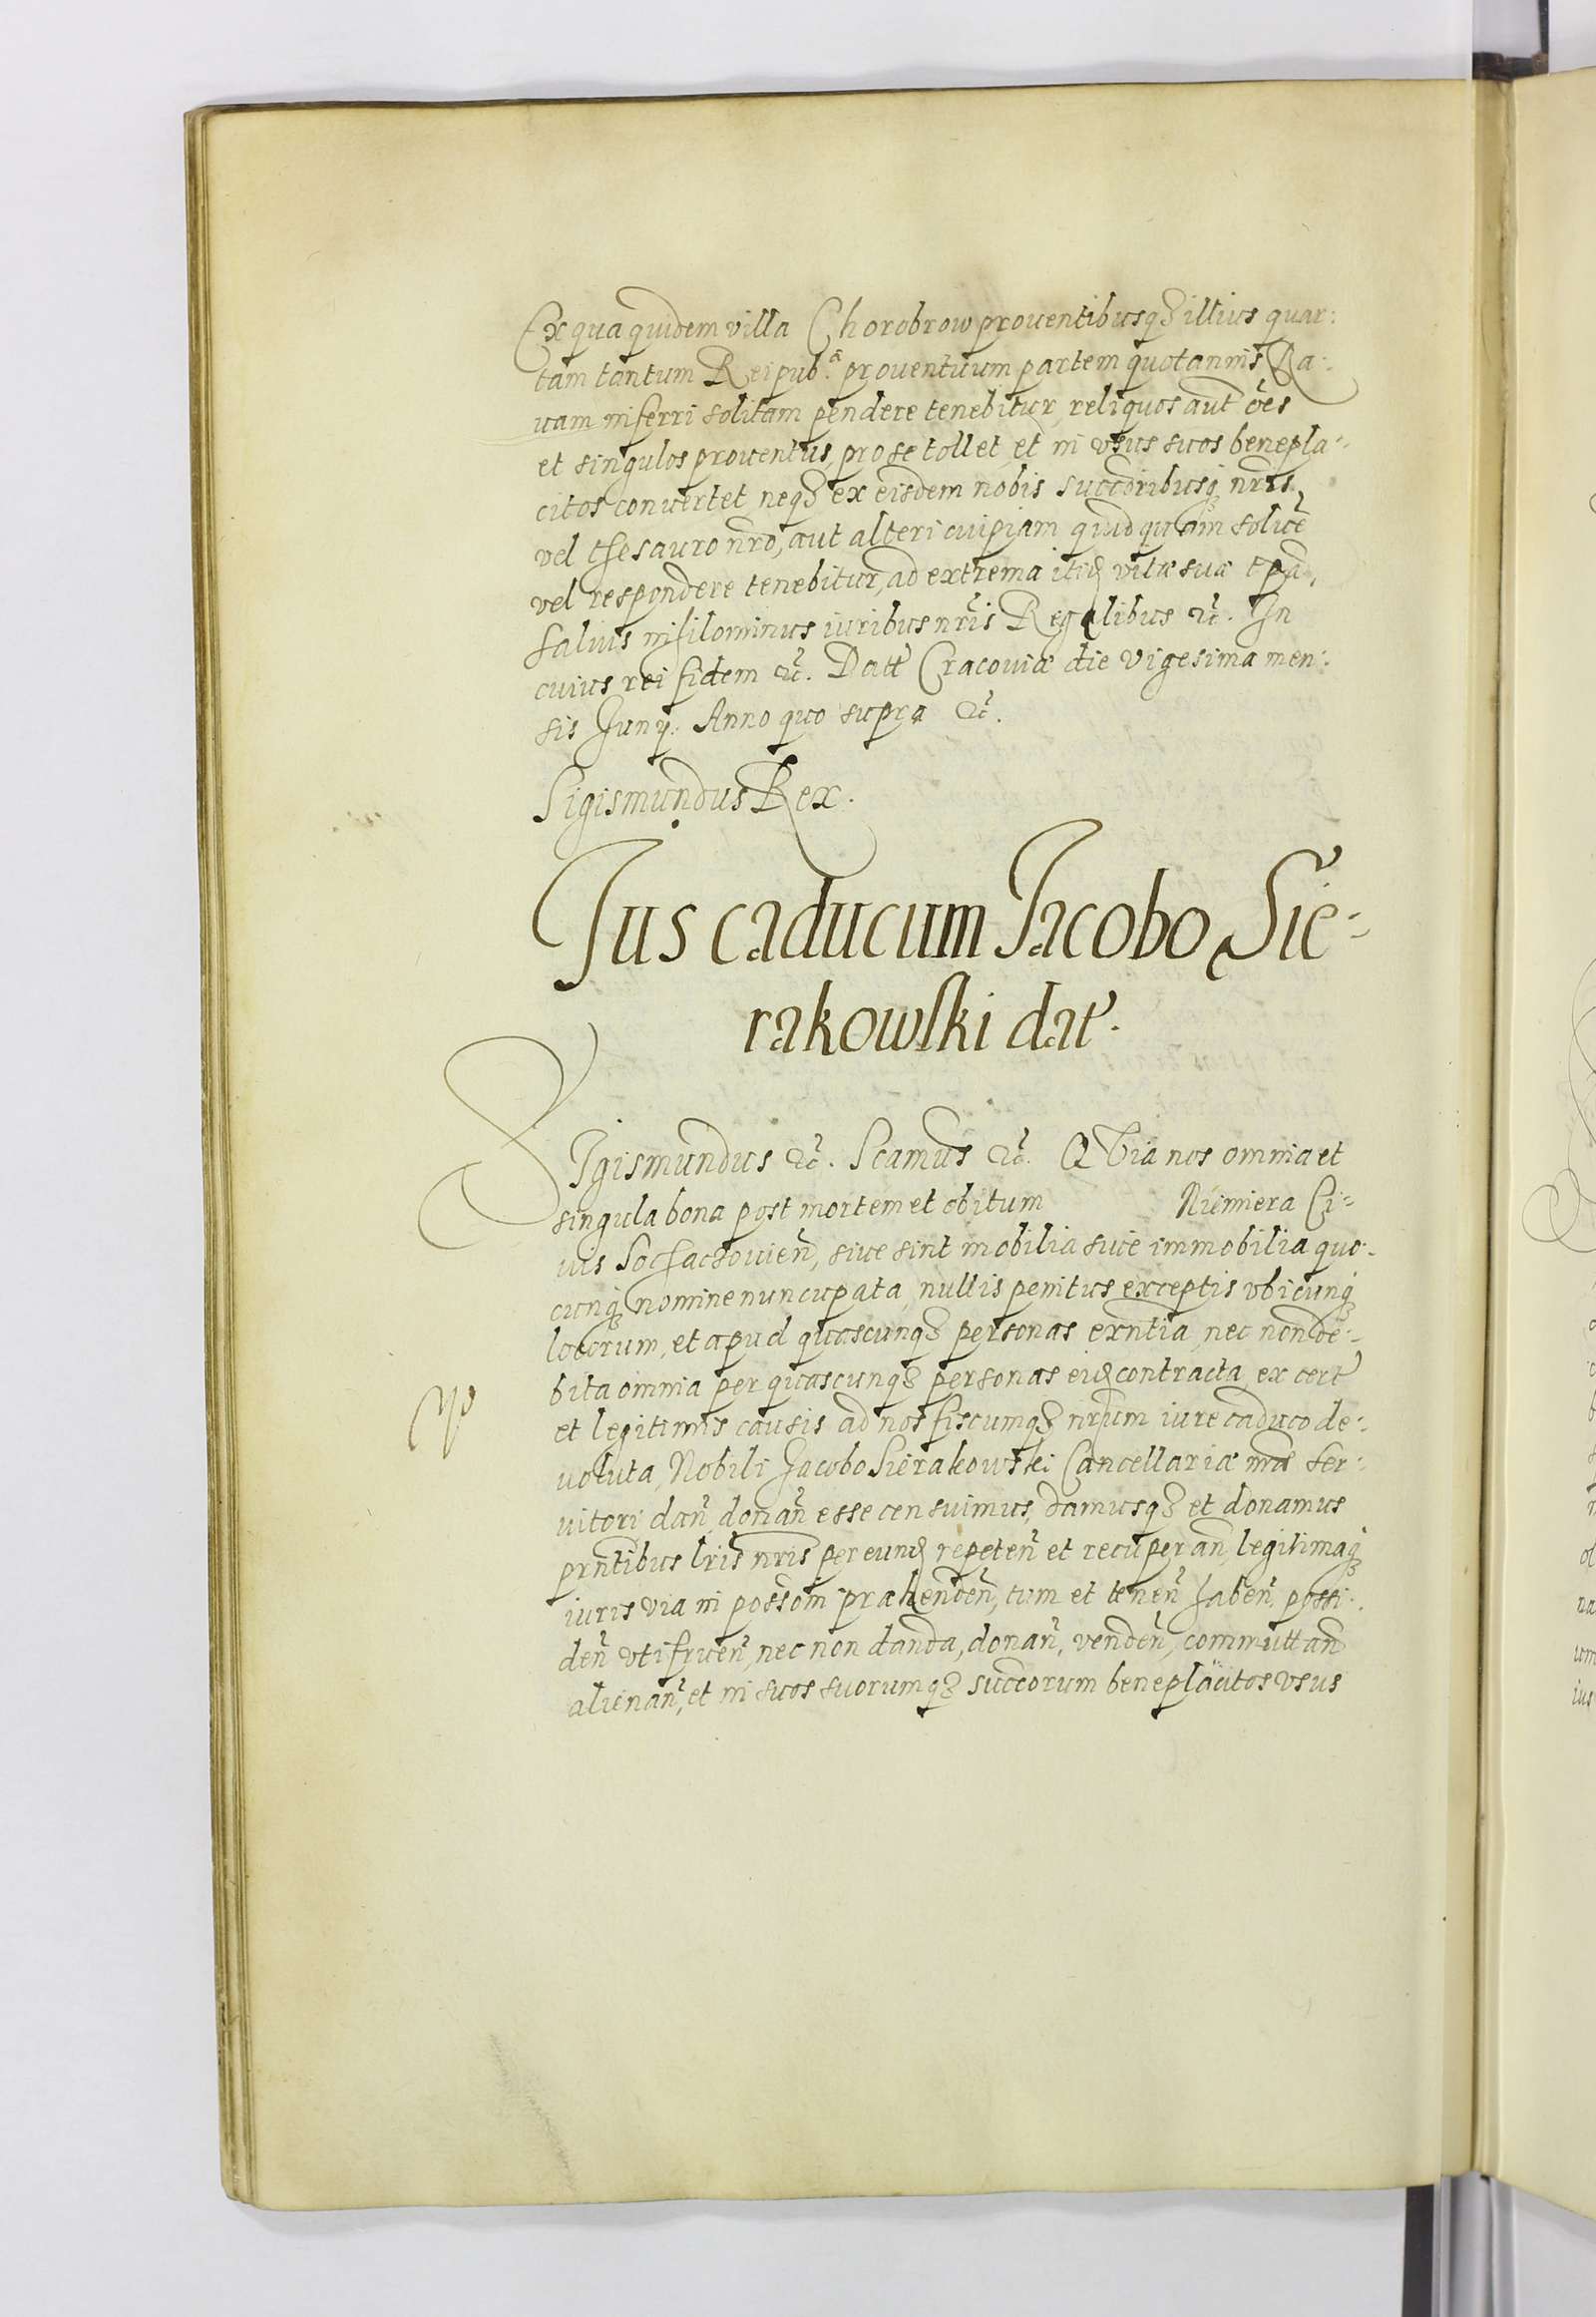 Ex qua quidem villa Chorobrow prouentibusqȝ illius quar:
tam tantum Reipub.ᵃ prouentuum partem quotannis Ra:
uam inferri solitam pendere tenebitur, reliquos aut̃ oẽs
et singulos prouentus, pro se tollet, et in vsus suos benepla:
citos conuertet, neqȝ ex eisdem nobis succ̃oribusqȝ nr̃is,
vel thesauro nr̃o, aut alteri cuipiam quidquam soluẽ
vel respondere tenebitur, ad extrema vitæ suæ tp̃a,
saluis nihilominus iuribus nr̃is Regalibus ꝛc̃. In
cuius rei fidem ꝛc̃. Datt Cracouiæ die vigesima men:
sis Junÿ. Anno quo supra ꝛc̃.
Sigismundus Rex.
Jus caducum Jacobo Sie:
rakowski dat̃.
SJgismundus ꝛc̃. Scamus ꝛc̃. QVia nos omnia et
singula bona post mortem et obitum Niemiera Ci:
uis Sochaczouien̄, siue sint mobilia siue immobilia quo:
cunqȝ nomine nuncupata, nullis penitus exceptis vbicunqȝ
locorum, et apud quascunqȝ personas exn̄tia, nec non de:
bita omnia per quascunqȝ personas contracta, ex cert̃
et legitimis causis ad nos fiscumqȝ nr̃um iure caduco de:
uoluta, Nobili Jacobo Sierakowski Cancellariæ nr̃æ ser:
uitori dan̄ donan̄ esse censuimus, damusqȝ et donamus
pr̃ntibus lr̃is nr̃is per repeten̄ et recuperan̄, legitimaqȝ
iuris via in poss̃om præhenden̄, tum et tenen̄ haben̄ possi:
den̄ vtifruen̄, nec non danda, donan̄, venden̄, commuttan̄
alienan̄, et in suos suorumqȝ succ̃orum beneplacitos vsus